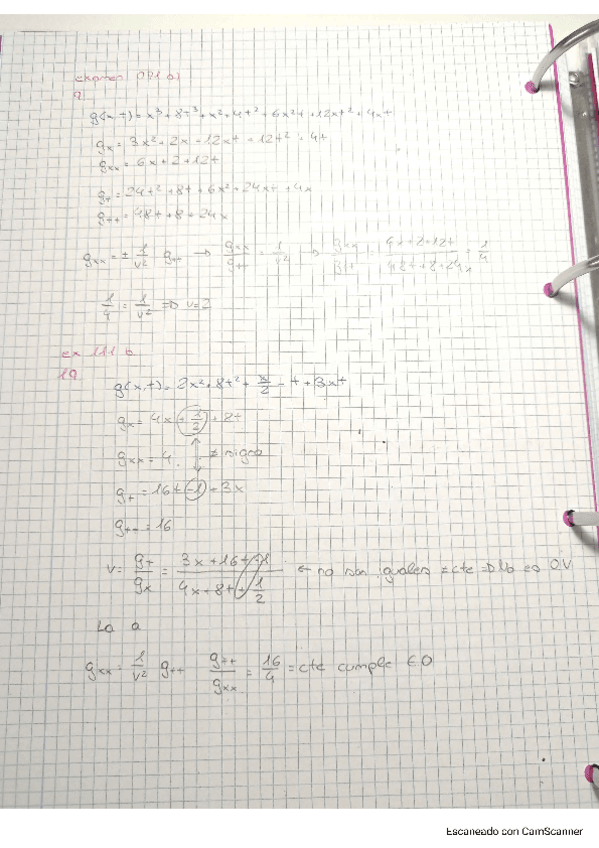 g(x,t) = x³ + 8t³ + x² + 4t² + 6x²t + 12xt² + 4xt
gx = 3x² + 2x + 12xt + 12t² + 4t
gxx = 6x + 2 + 12t
gt = 24t² + 8t + 6x² + 24xt + 4x
gtt = 48t + 8 + 24x
gxx = ± 1/v² gtt → gxx/gtt = 1/v² ⇒ gxx/gtt = 6x+2+12t/48t+8+24x = 1/4
1/4 = 1/v² ⇒ v=2
ex 111 b
19
g(x,t) = 2x² + 8t² + x/2 - t + 3xt
gx = 4x + 1/2 + 8t
gxx = 4 ≠ signo
gt = 16t - 1 + 3x
gtt = 16
v = gt/gx = 3x+16t-1/4x+8t+1/2 ← no son iguales ≠ cte ⇒ No es O.V
La a
gxx = 1/v² gtt gtt/gxx = 16/4 = cte cumple EO
Escaneado con CamScanner